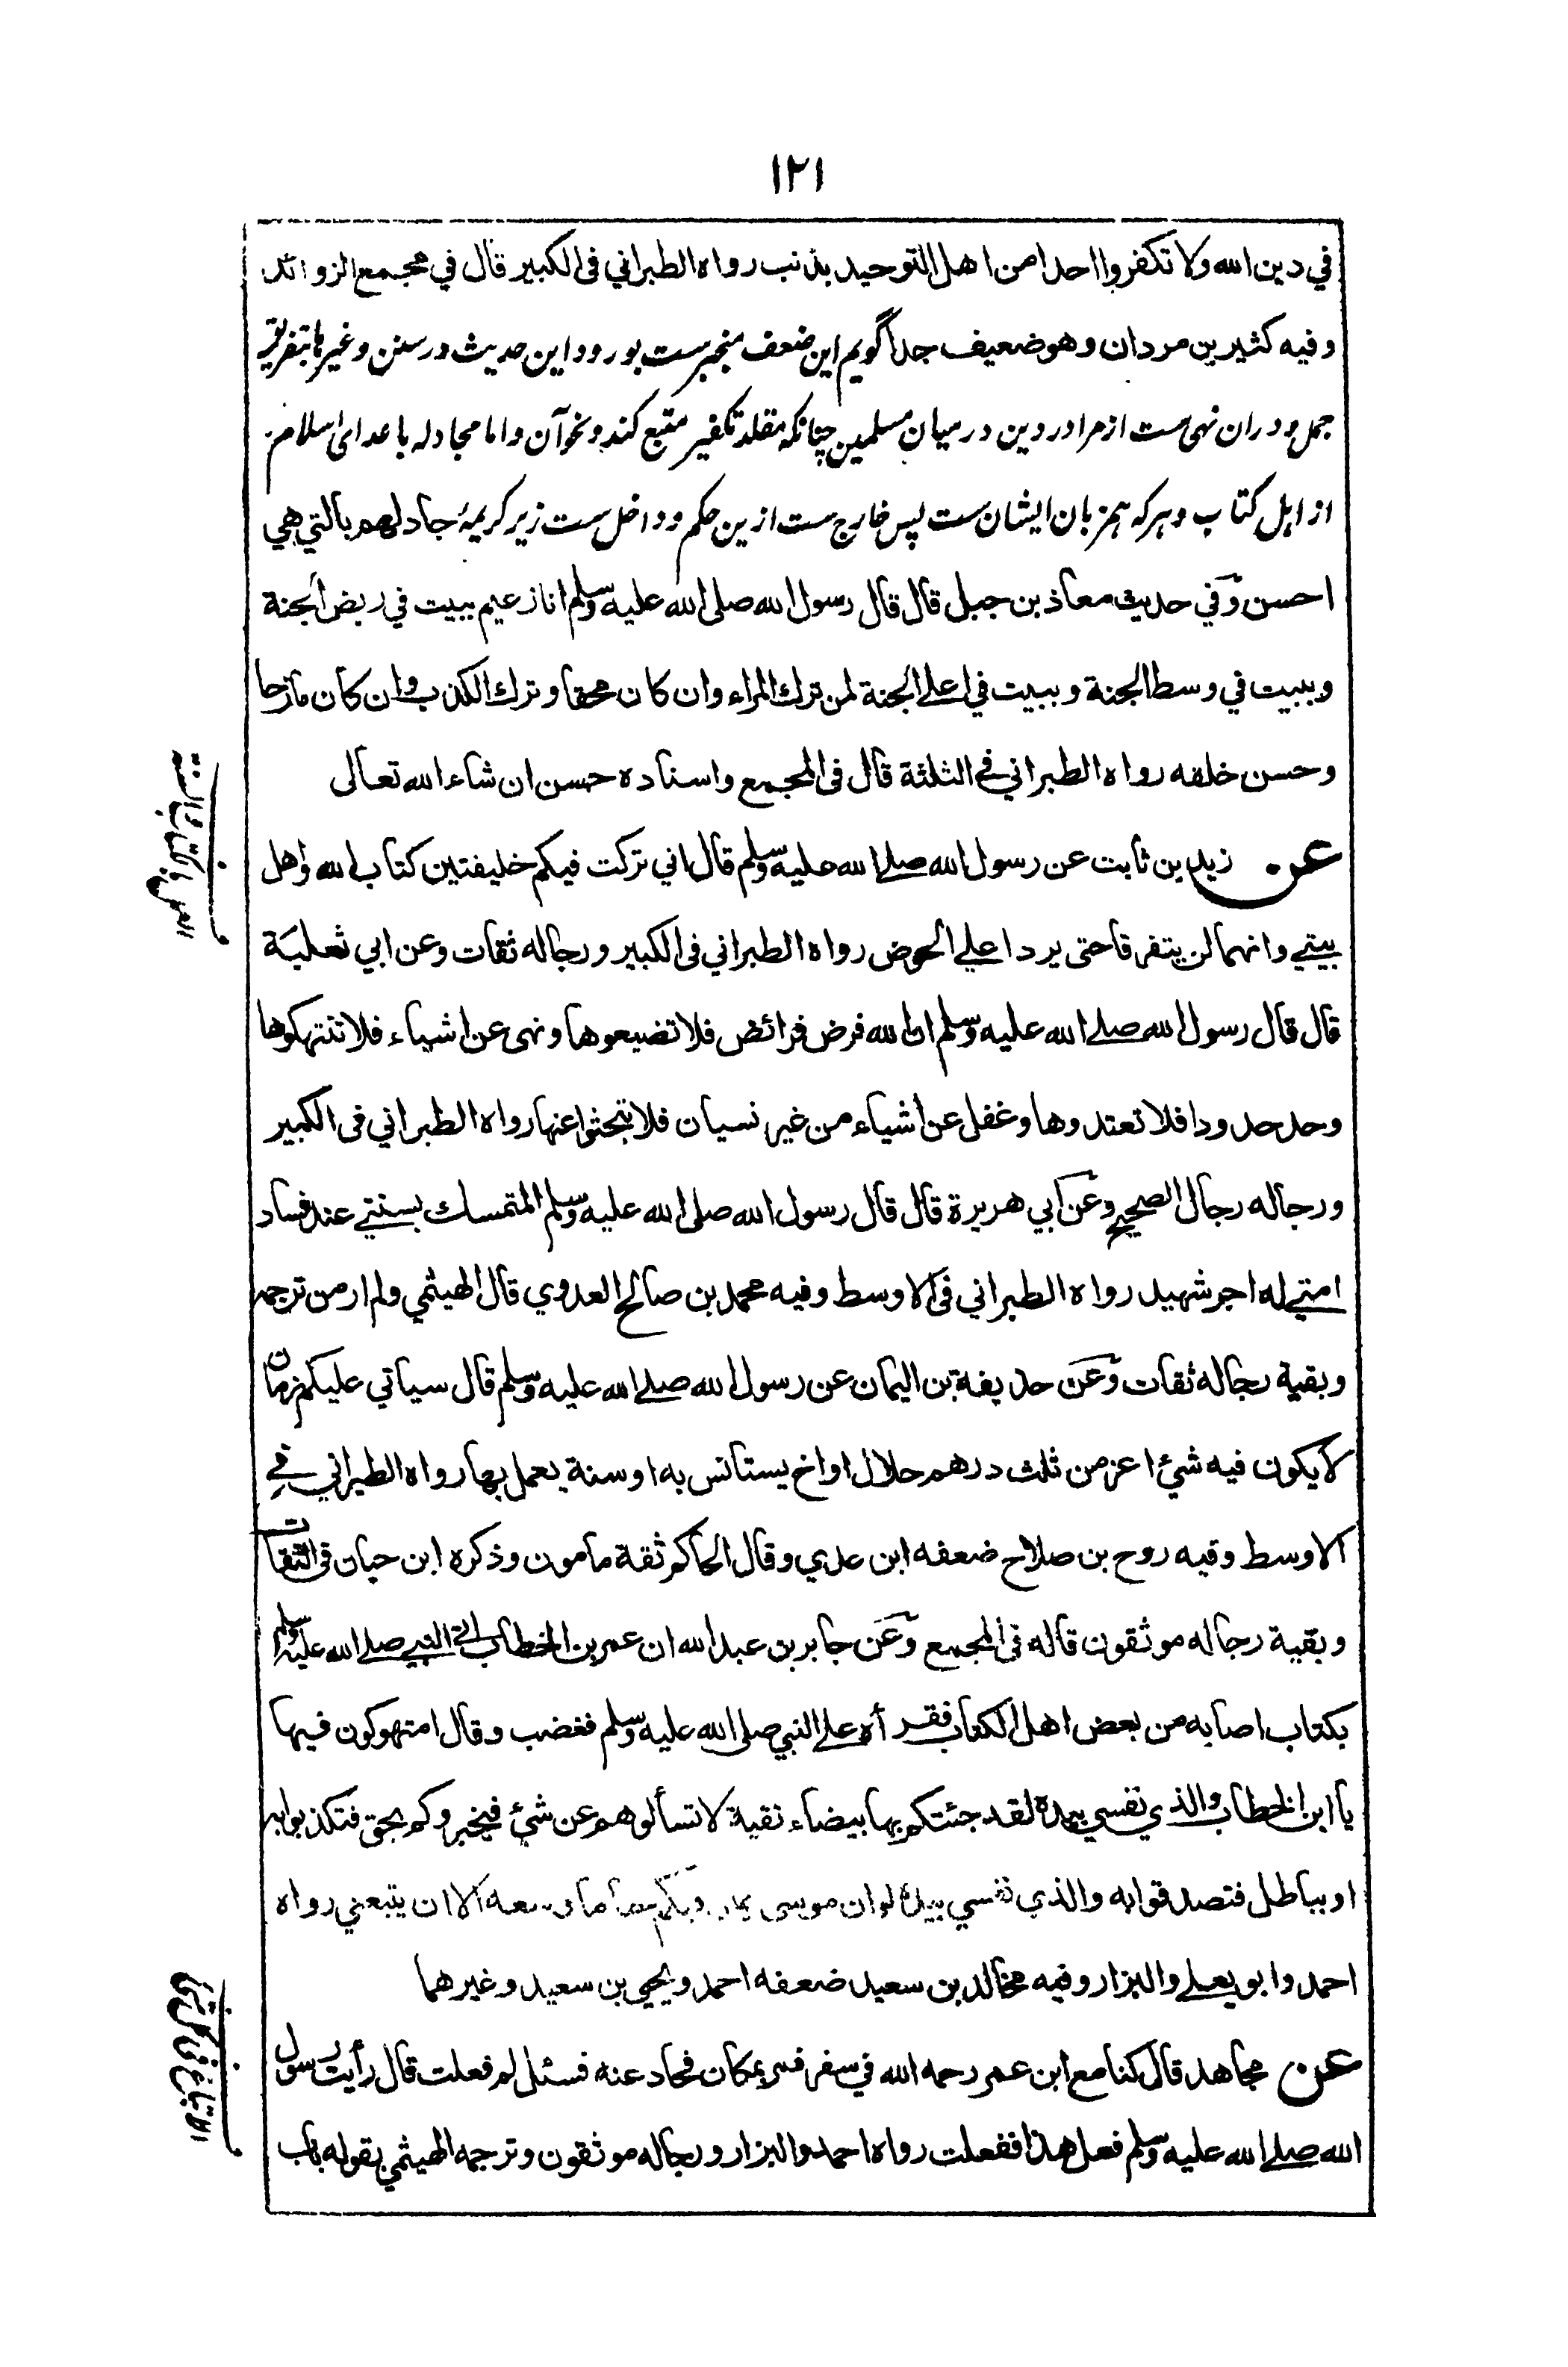 ١٢١
في دين الله ولا تكفروا احدا من اهل التوحيد بذنب رواه الطبراني فى الكبير قال في مجمع الزوائد
وفيه كثير بن مردان وهو ضعيف جدا گويم اين ضعف منجبرست بورود اين حديث در سنن وغيرها بتفريق
جمل ودران نهى ست از مرا در دين درميان مسلمين چنانكه مقلد تكفير متبع كند ونحو آن واما مجادله باعداى اسلام
از اهل كتاب وهركه همزبان ايشان ست پس خارج ست ازين حكم وداخل ست زير كريمهٔ جادلهم بالتي هي
احسن وفي حديث معاذ بن جبل قال قال رسول الله صلى الله عليه وسلم انا زعيم ببيت في ربض الجنة
وببيت في وسط الجنة وببيت في اعلے الجنة لمن ترك المراء وان كان محقا وترك الكذب وان كان مازحا
وحسن خلقه رواه الطبراني في الثلثة قال فى المجمع واسناده حسن ان شاء الله تعالى
عن زيد بن ثابت عن رسول الله صلے الله عليه وسلم قال اني تركت فيكم خليفتين كتاب الله واهل
بيتي وانهما لن يتفرقا حتى يردا علي الحوض رواه الطبراني فى الكبير ورجاله ثقات وعن ابي ثعلبة
قال قال رسول الله صلے الله عليه وسلم ان الله فرض فرائض فلا تضيعوها ونهى عن اشياء فلا تنتهكوها
وحد حدودا فلا تعتدوها وغفل عن اشياء من غير نسيان فلا تبحثوا عنها رواه الطبراني فى الكبير
ورجاله رجال الصحيح وعن ابي هريرة قال قال رسول الله صلى الله عليه وسلم المتمسك بسنتي عند فساد
امتي له اجر شهيد رواه الطبراني فى الاوسط وفيه محمد بن صالح العدوي قال الهيثمي ولم ار من ترجمه
وبقية رجاله ثقات وعن حذيفة بن اليمان عن رسول الله صلے الله عليه وسلم قال سيأتي عليكم زمان
لا يكون فيه شيء اعز من ثلث درهم حلال او اخ يستانس به او سنة يعمل بها رواه الطبراني في
الاوسط وفيه روح بن صلاح ضعفه ابن عدي وقال الحاكم ثقة مامون وذكره ابن حبان فى الثقات
وبقية رجاله موثقون قاله فى المجمع وعن جابر بن عبد الله ان عمر بن الخطاب اتى النبي صلے الله عليه وسلم
بكتاب اصابه من بعض اهل الكتاب فقرأه على النبي صلى الله عليه وسلم فغضب وقال امتهوكون فيها
يا ابن الخطاب والذي نفسي بيده لقد جئتكم بها بيضاء نقية لا تسألوهم عن شيء فيخبروكم بحق فتكذبوا به
او بباطل فتصدقوا به والذي نفسي بيده لو ان موسى ما وسعه الا ان يتبعني رواه
احمد وابو يعلے والبزار وفيه مخالد بن سعيد ضعفه احمد ويحيى بن سعيد وغيرهما
عن مجاهد قال كنا مع ابن عمر رحمه الله في سفر فمر بمكان فحاد عنه فسئل لم فعلت قال رأيت رسول
الله صلے الله عليه وسلم فعل هذا ففعلت رواه احمد والبزار ورجاله موثقون وترجمه الهيثمي بقوله باب